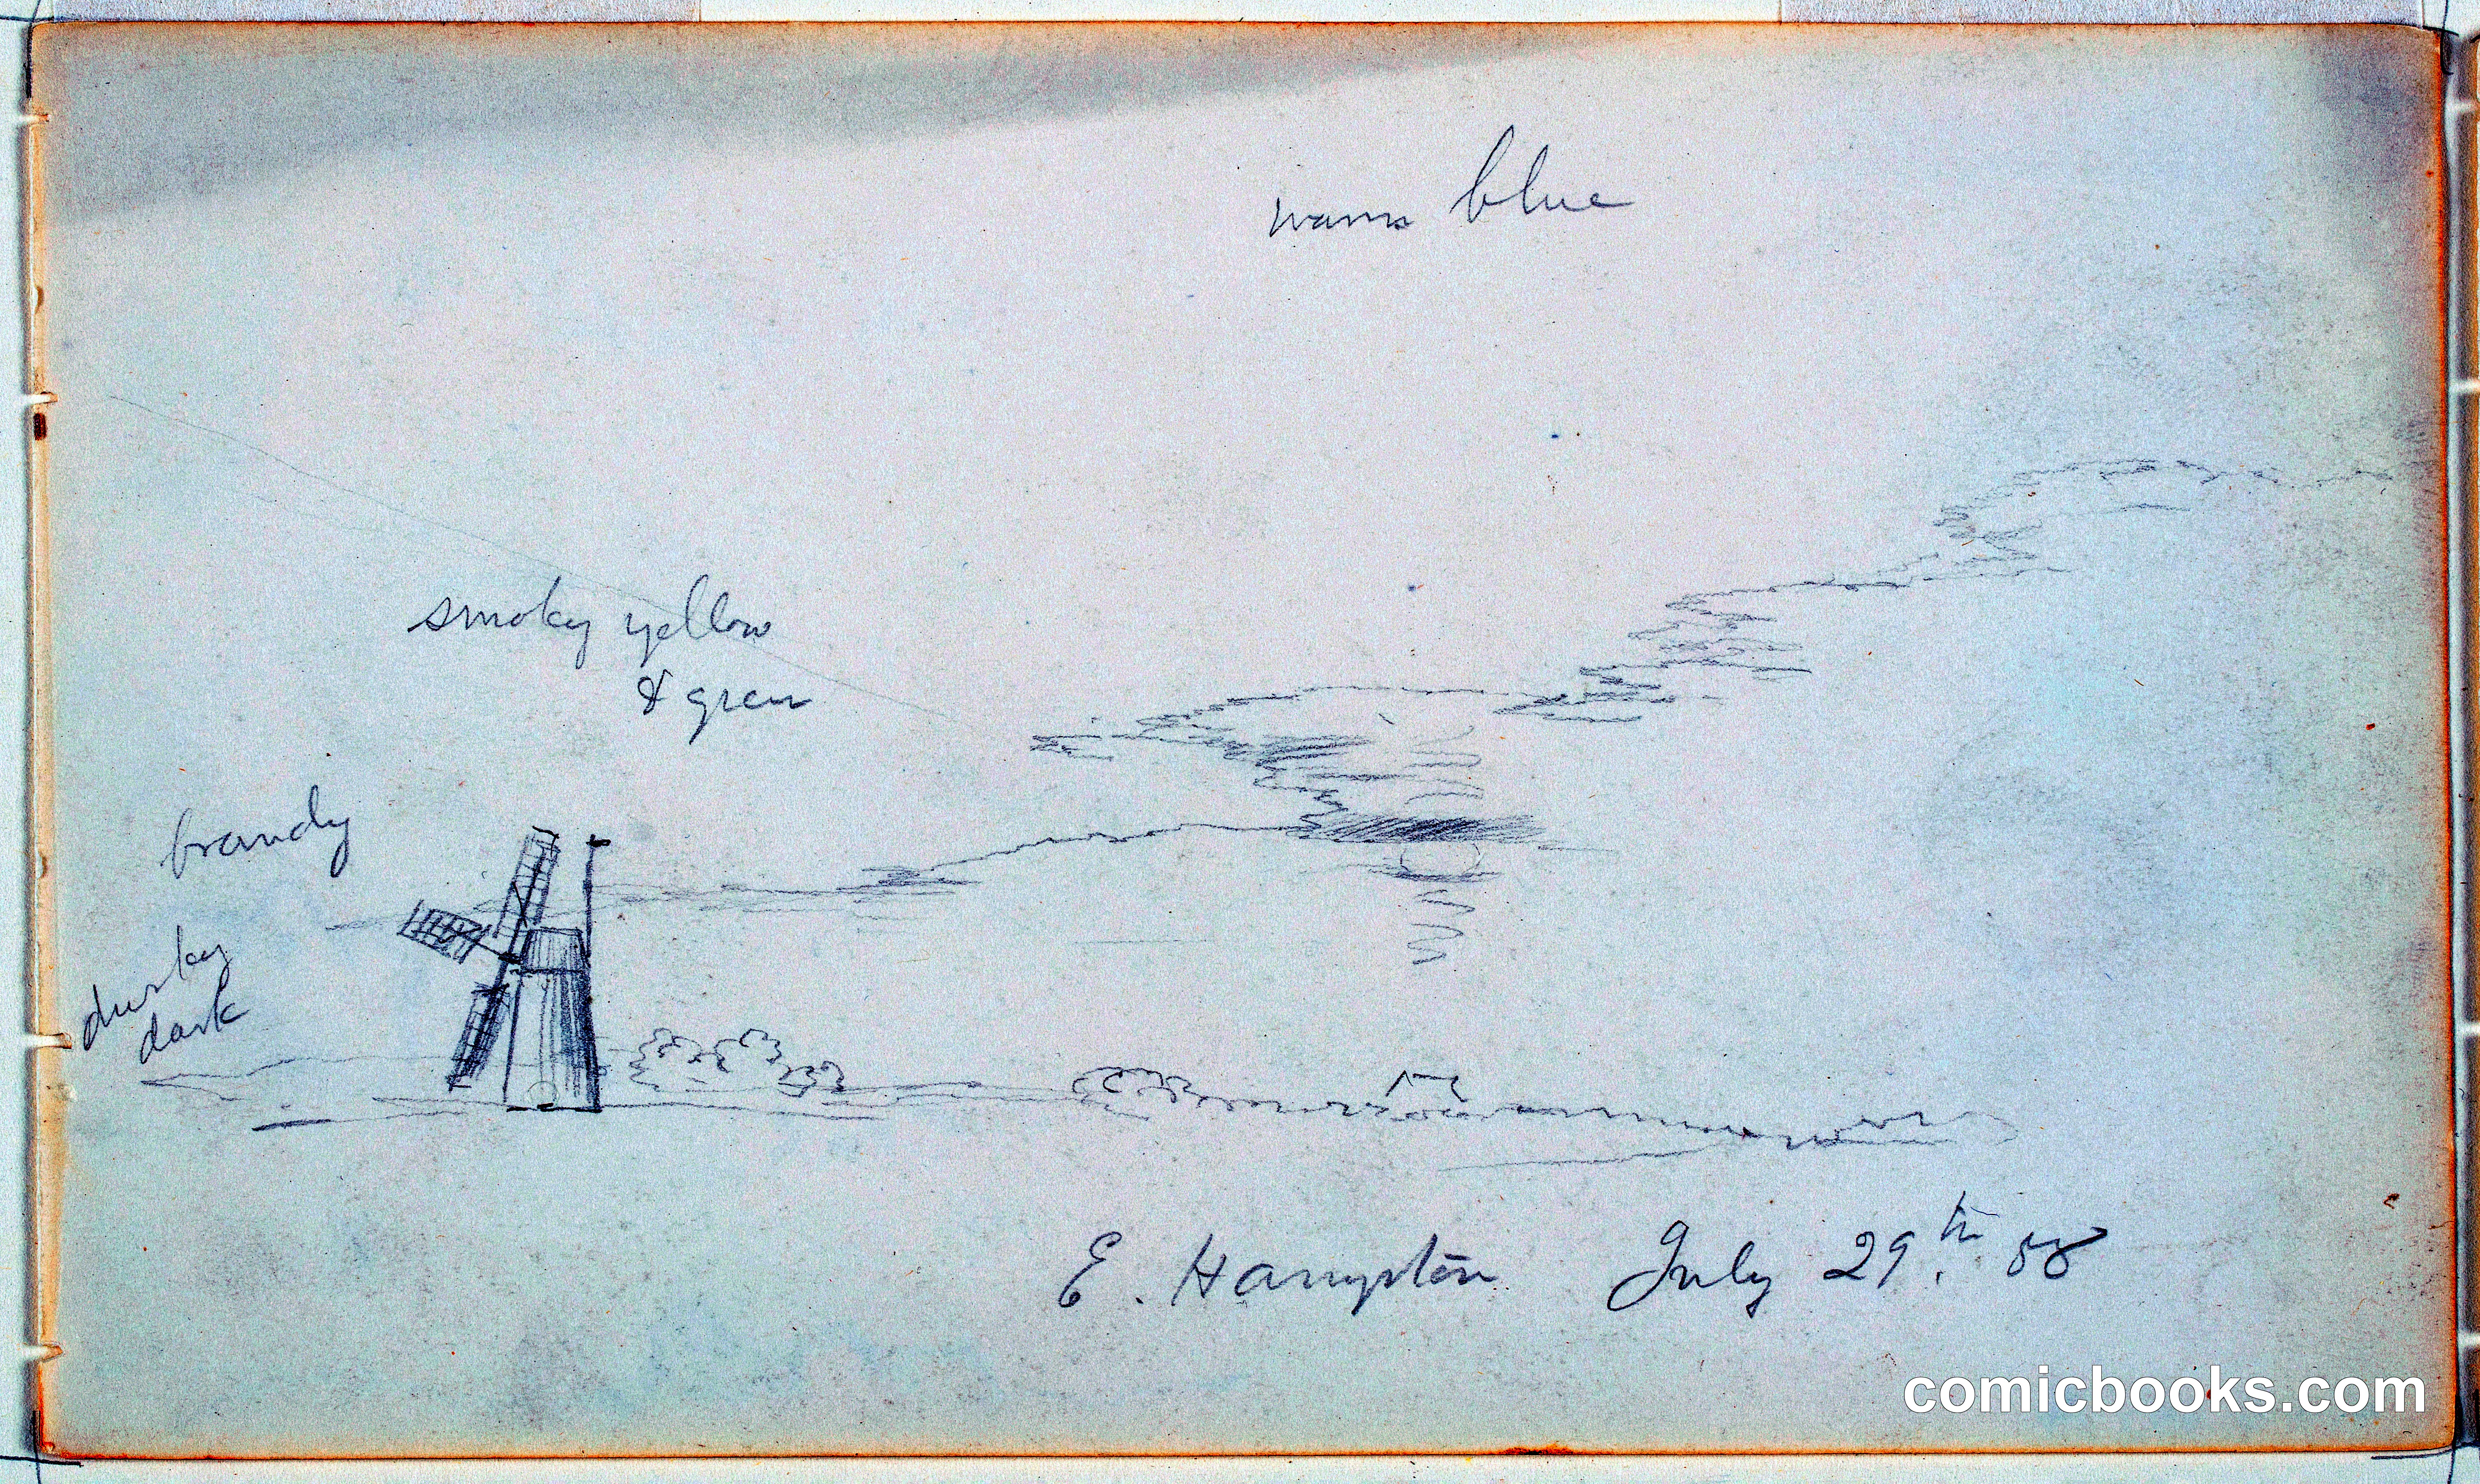 warm blue
smoky yellow
& green
brandy
dusky
dark
E. Hampton July 29th. 88
comicbooks.com